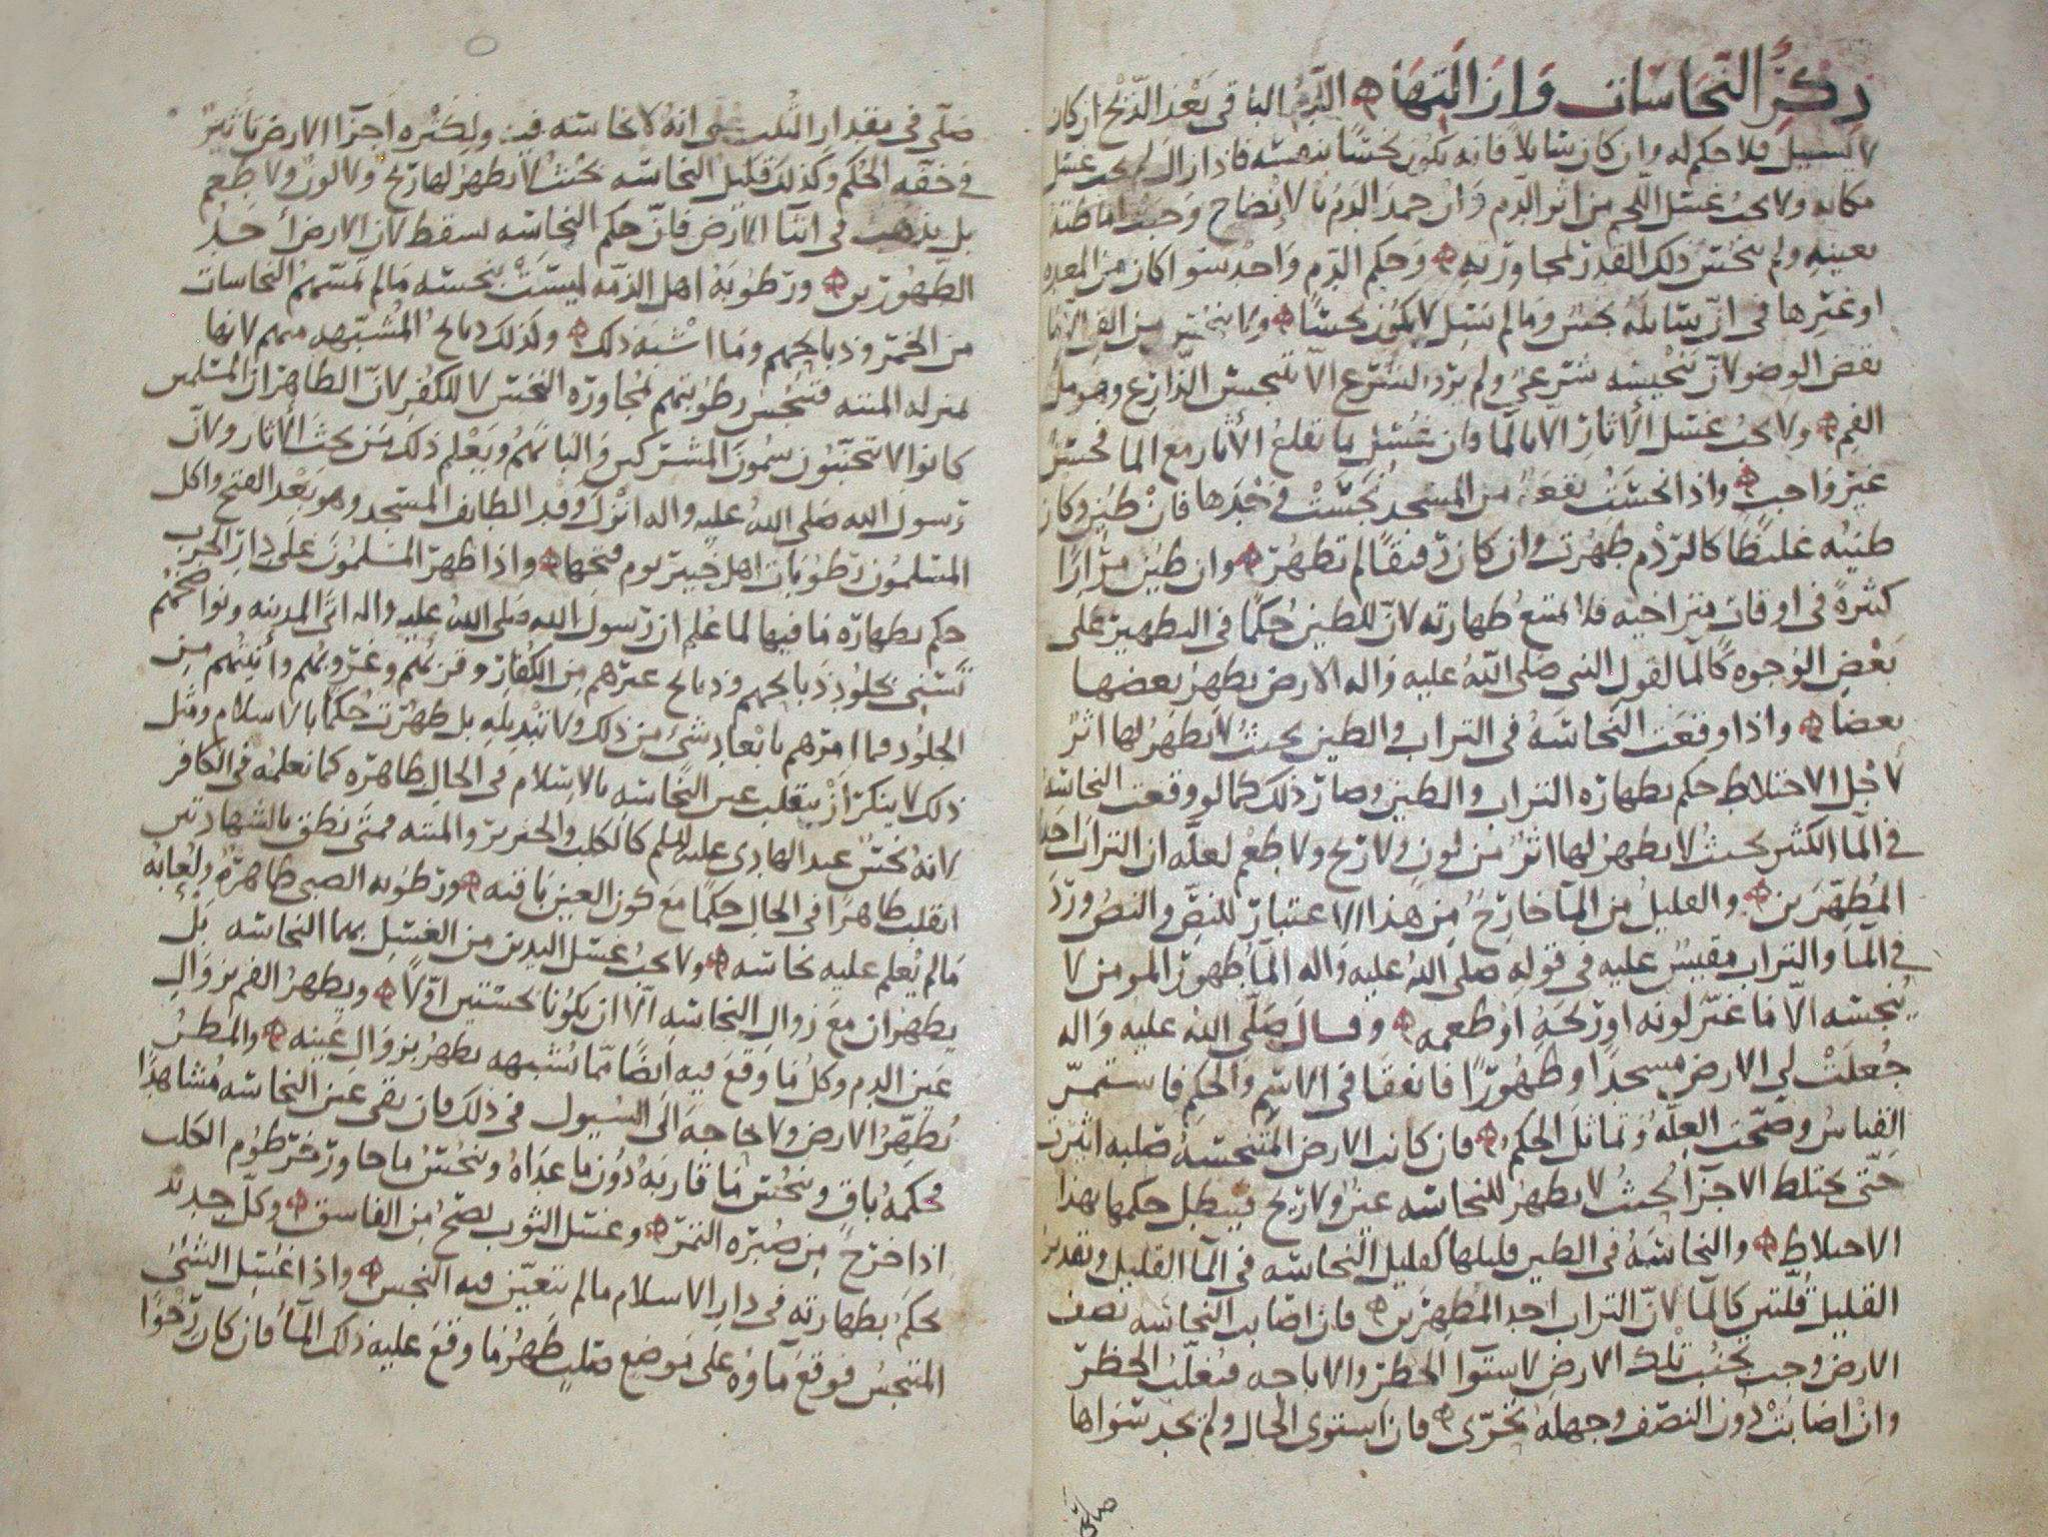 ذكر النجاسات وازالتها الدم الباقي بعد الذبح ان كان
لا يسيل فلا حكم له وان كان سايلا فانه يكون نجسا بنفسه فاذا زال لم يجب غسل
مكانه ولا يجب غسل اللحم من اثر الدم وان جمد الدم بالانضاح وجب اماطته
بعينه ولم ينجس ذلك القدر لمجاورته وحكم الدم واحد سوا كان من المعده
او غيرها في ان سايله نجس وما لم يسل لا يكون نجسا ولا ينجس من القي الا ما
نقض الوضو لان تنجيسه شرعي ولم يرد الشرع الا بتنجيس الذارع وهو مل
الفم ولا يجب غسل الاثار الا بالما وان غسل بما يقلع الاثار مع الما فحسن
غير واجب واذا نجست بقعة من المسجد نجست وحدها فان طين وكان
طينه غليظا كالردم طهرت وان كان رقيقا لم تطهر وان طين مرارا
كثيرة في اوقات متراخيه فلا تمتنع طهارته لان للطين حكما في التطهير على
بعض الوجوه كالما لقول النبي صلى الله عليه واله الارض يطهر بعضها
بعضا واذا وقعت النجاسه في التراب والطين بحيث لا يظهر لها اثر
لاجل الاختلاط حكم بطهاره التراب والطين وصار ذلك كما لو وقعت النجاسه
في الما الكثير بحيث لا يظهر لها اثر من لون ولا ريح ولا طعم لعله ان التراب احد
المطهرين والقليل من الما خارج من هذا الاعتبار للنص والنص ورد
في الما والتراب مقيس عليه في قوله صلى الله عليه واله الما طهور المومن لا
ينجسه الا ما غير لونه او ريحه او طعمه وقال صلى الله عليه واله
جعلت لي الارض مسجدا وطهورا فاتفقا في الاسم والحكم فاستمر
القياس وصحت العله وتماثل الحكم فان كانت الارض المتنجسة صلبه اثيرت
حتى يختلط الاجزا بحيث لا يظهر للنجاسه عين ولا ريح فيبطل حكمها بهذا
الاختلاط والنجاسه في الطين قليلها كقليل النجاسه في الما القليل وتقدير
القليل قلتين كالما لان التراب احد المطهرين فان اصابت النجاسه نصف
الارض وجب تجنب تلك الارض لاستوا الحظر والاباحه فيغلب الحظر
وان اصابت دون النصف وجهله تحرى فان استوى الحال ولم يجد سواها
صلى
صلى في مقدار الثلث على انه لا نجاسه فيه ولكثره اجزا الارض تاثير
في خفه الحكم وكذلك قليل النجاسه بحيث لا يظهر لها ريح ولا لون ولا طعم
بل يذهب في اثنا الارض فان حكم النجاسه يسقط لان الارض احد
الطهورين ورطوبه اهل الذمه ليست بنجسه مالم تمسهم النجاسات
من الخمر وذبايحهم وما اشبه ذلك وكذلك ذبايح المشبهه منهم لانها
بمنزله الميته فتنجس رطوبتهم لمجاوره النجس لا للكفر لان الظاهر ان المسلمين
كانوا لا يتجنبون سمون المشركين والبانهم ويعلم ذلك من بحث الاثار ولان
رسول الله صلى الله عليه واله انزل وفد الطايف المسجد وهو بعد الفتح واكل
المسلمون رطوبات اهل خيبر يوم فتحها واذا ظهر المسلمون على دار الحرب
حكم بطهاره ما فيها لما علم ان رسول الله صلى الله عليه واله اتى المدينه ونواضحهم
تستني بجلود ذبايحهم وذبايح غيرهم من الكفار وقربهم وغروبهم وانيتهم من
الجلود فما امرهم بابعاد شي من ذلك ولا تبديله بل طهرت حكما بالاسلام ومثل
ذلك لا ينكر ان ينقلب عين النجاسه بالاسلام في الحال طاهره كما نعلمه في الكافر
لانه نجس عند الهادي عليه السلم كالكلب والخنزير والميته فمتى نطق بالشهادتين
انقلب طاهرا في الحال حكما مع كون العين باقيه ورطوبه الصبي طاهره ولعابه
مالم يعلم عليه نجاسه ولا يجب غسل اليدين من الغسل بهما النجاسه بل
يطهران مع زوال النجاسه الا ان يكونا نجستين اولا ويطهر الفم بزوال
عين الدم وكل ما وقع فيه ايضا مما يشبهه يطهر بزوال عينه والمطر
يطهر الارض ولا حاجه الى السيول في ذلك فان بقي عين النجاسه مشاهدا
فحكمه باق وينجس ما قاربه دون ما عداه وينجس ما جاور خرطوم الكلب
اذا خرج من صبره التمر وغسل الثوب يصح من الفاسق وكل جديد
يحكم بطهارته في دار الاسلام مالم تتعين فيه النجس واذا غسل الشي
المتنجس فوقع ماوه على موضع صلب طهر ما وقع عليه ذلك الما فان كان رخوا